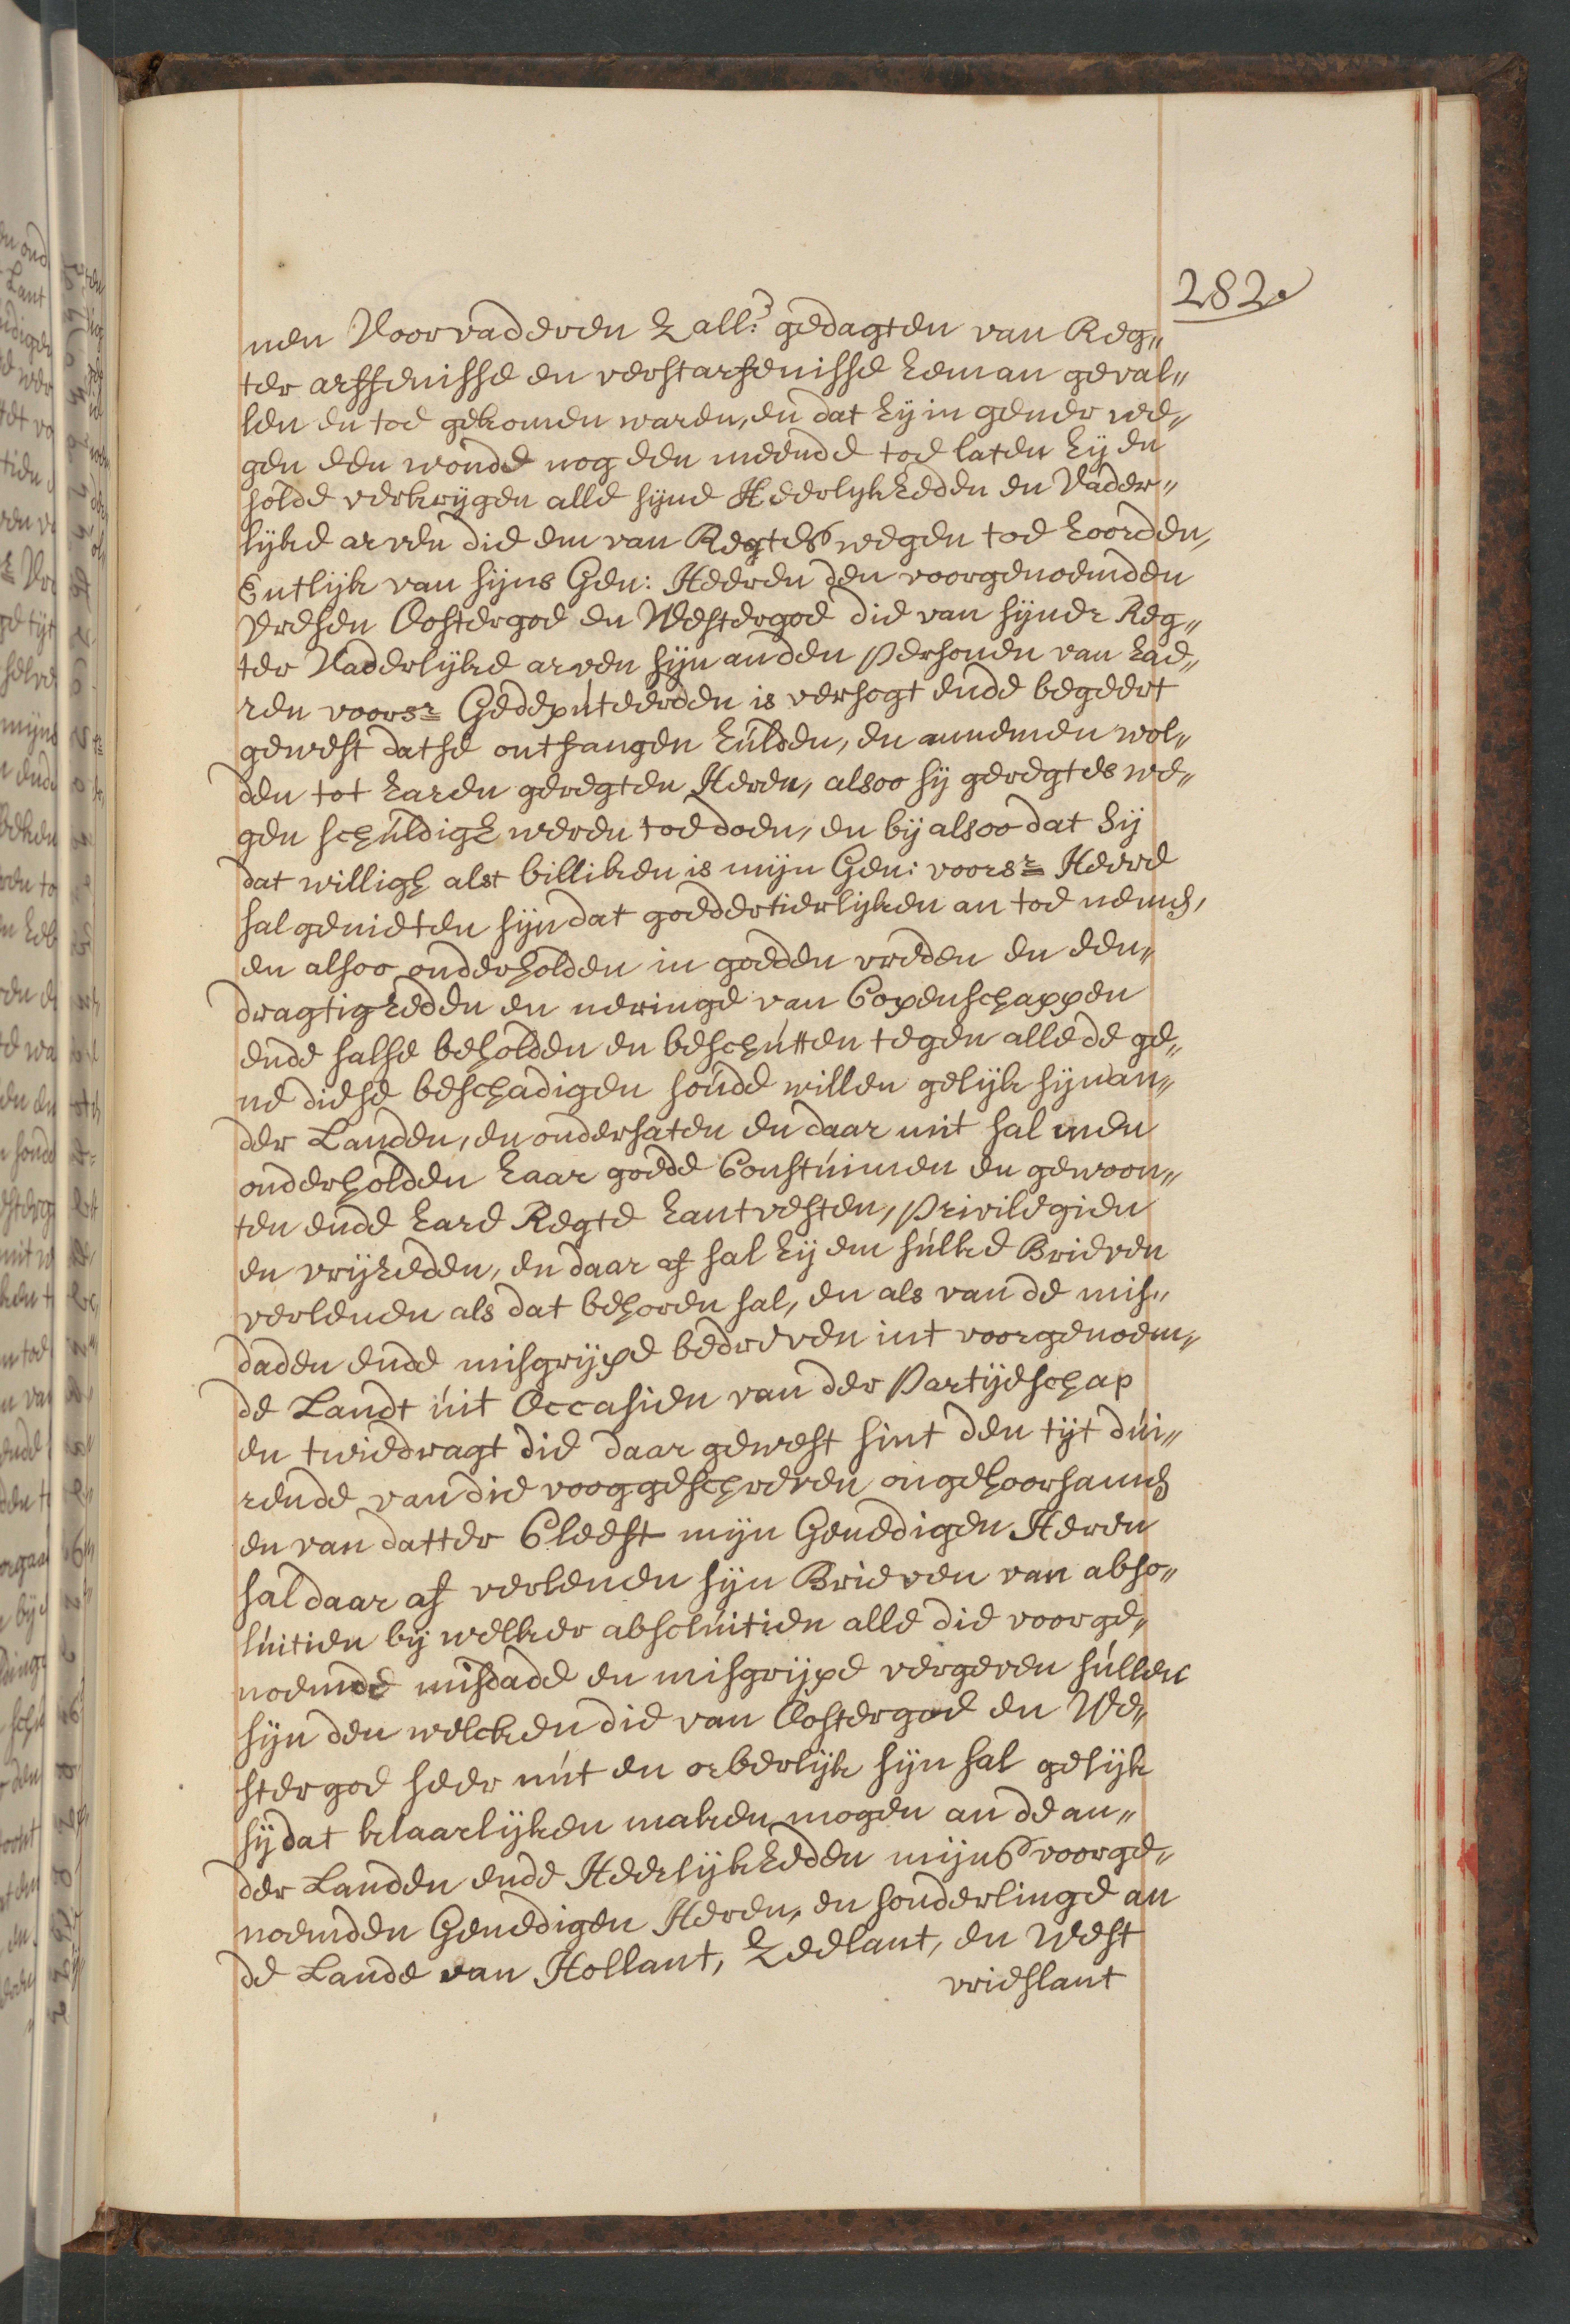 282.
nen Voorvaderen Zall.r gedagten van Reg„
ter arffenisse en verstarfenisse heman geval„
len en toe gekomen waren, en dat hij in gener we„
gen een wonde nog een meende toe laten hij en
solde verkrijgen alle sijne Heerlykheden en Vader„
lijke arven die em van Regtes wegen toe hoorden,
Entlijk van sijns Gen: Heeren den voorgenoemden
Vresen Oostergoe en Westergoe die van sijner Reg„
ter Vaderlijke arven sijn an den Personen van hae„
ren voorsr Gedeputeerden is versogt ende begeert
gewest datse ontfangen hulden, en annemen wol„
den tot haren geregten Heren, alsoo sij geregtes we„
gen schuldigh weren toe doen, en bij alsoo dat sij
dat willigh alst billiken is mijn Gen: voorsr Heere
sal genieten sijn dat goedertierlijken an toe nemen,
en alsoo onderholden in goeden vreden en een„
dragtigheden en neringe van Copenschappen
ende salse beholden en beschutten tegen alle de ge„
ne diese beschadigen soude willen gelijk sijn an„
der Landen, en ondersaten en daar mit sal men
onderholden haar goede Constuimen en gewoon„
ten ende hare Regte hantvesten, Privilegien
en vrijheden, en daar af sal hij em sulke Brieven
verlenen als dat behoren sal, en als van de mis„
daden ende misgrijpe bedreven int voorgenoem„
de Landt uit Occasien van der Partijeschap
en twiedragt die daar gewest sint den tijt dui„
rende van die vooggeschreven ongehoorsamh
en van datter Cleest mijn Genedigen Heren
sal daar af verlenen sijn Brieven van abso„
luitien bij welker absoluitien alle die voorge„
noemde misdade en misgrijpe vergeven sullen
sijn den welcken die van Oostergoe en We„
stergoe seer nut en orberlijk sijn sal gelijk
sij dat klaarlijken maken mogen an de an„
der Landen ende Heerlijkheden mijns voorge„
noemden Genedigen Heren, en sonderlinge an
de Lande van Hollant, Zeelant, en West
vrieslant